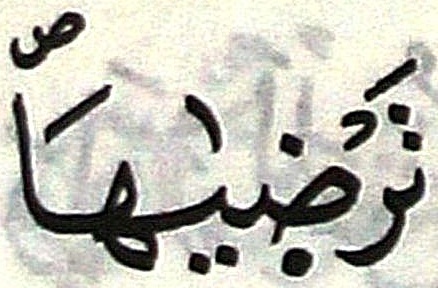 تَرْضٰيهَا ۪ص